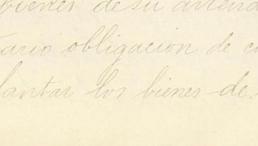 bienes de su arrenda
tario obligacion de
plantar los bienes de